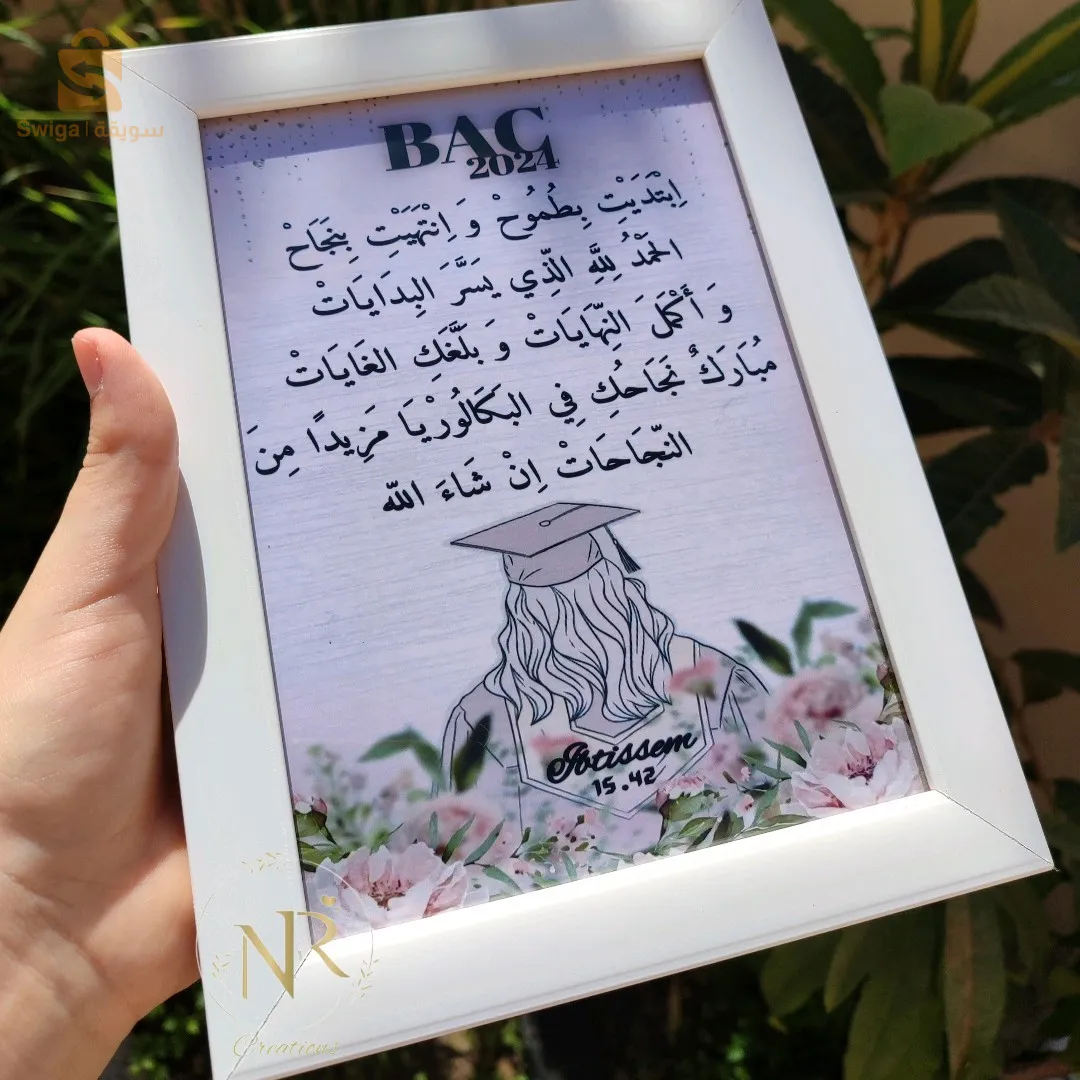 Swiga | سويقة
BAC
2024
اِبْتَدَيْتِ بِطُمُوحْ وَ اِنْتَهَيْتِ بِنَجَاحْ
الحَمْدُ لِلَّهِ الَّذِي يَسَّرَ البِدَايَاتْ
وَ أَكْمَلَ النِّهَايَاتْ وَ بَلَّغَكِ الغَايَاتْ
مُبَارَكٌ نَجَاحُكِ فِي البَكَالُورْيَا مَزِيدًا مِنَ
النَّجَاحَاتْ اِنْ شَاءَ اللّه
Ibtissem
15.42
NR
Creations